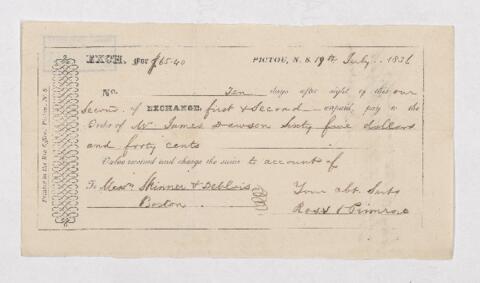 EXCH. For $65.40 PICTOU, N. S. 19th July 1836
No. Ten days after sight of this our
Second of EXCHANGE, first & Second unpaid, pay to the
Order of Mr. James Dawson Sixty five dollars
and forty cents
Value received and charge the same to account of
To Messrs Skinner & Deblois Your obt. Svts
Boston Ross & Primrose
Printed in the Bee Office, Pictou, N. S.